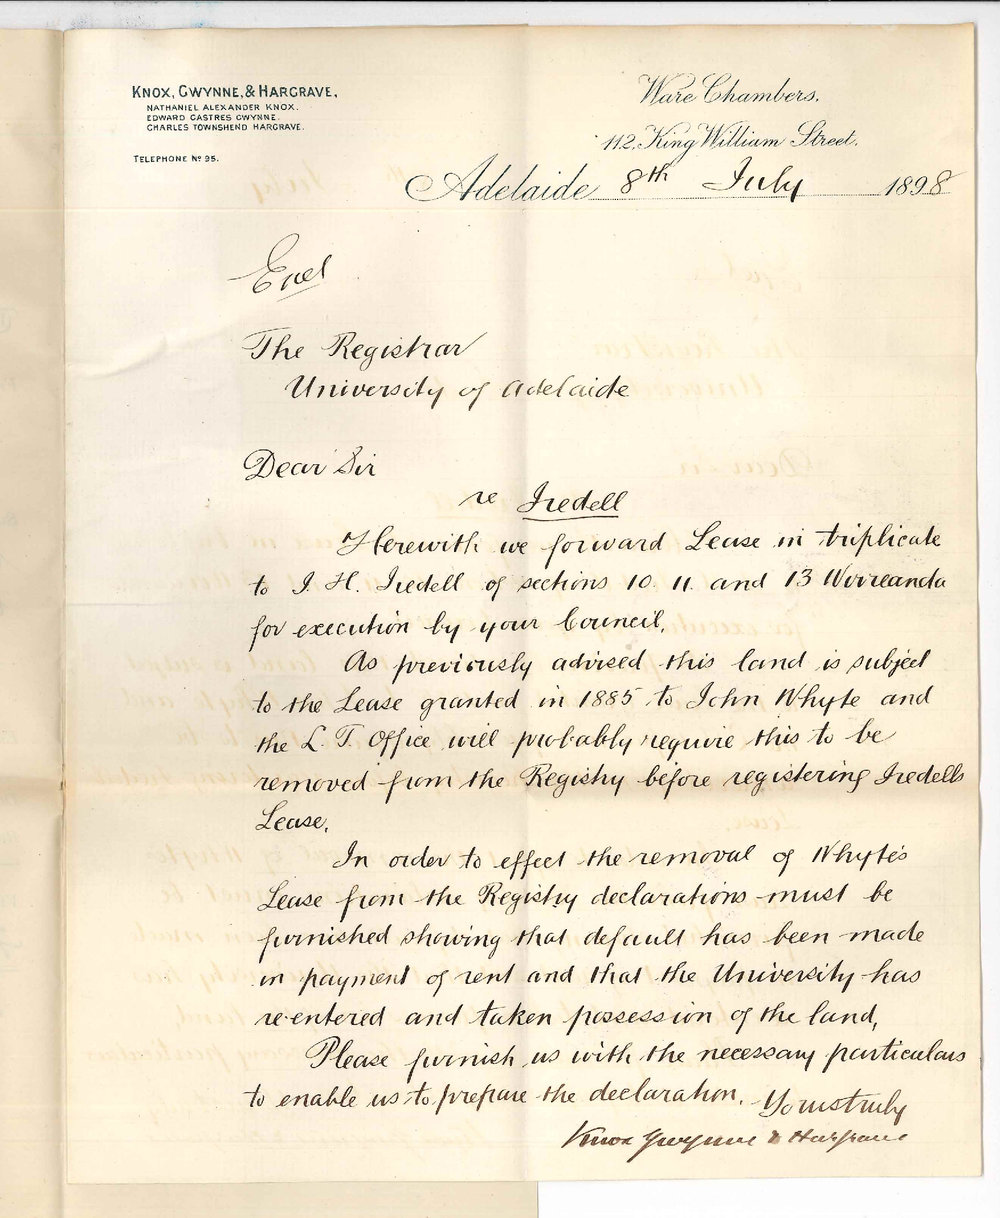 KNOX, GWYNNE, & HARGRAVE,
NATHANIEL ALEXANDER KNOX.
EDWARD CASTRES GWYNNE.
CHARLES TOWNSHEND HARGRAVE.
TELEPHONE No 95.
Ware Chambers,
112, King William Street.
Adelaide 8th July 1898
Encl
The Registrar
University of Adelaide
Dear Sir
re Iredell
Herewith we forward Lease in triplicate
to J. H. Iredell of sections 10. 11. and 13 Wirreanda
for execution by your Council.
As previously advised this land is subject
to the Lease granted in 1885 to John Whyte and
the L. T. Office will probably require this to be
removed from the Registry before registering Iredells
Lease.
In order to effect the removal of Whyte's
Lease from the Registry declarations must be
furnished showing that default has been made
in payment of rent and that the University has
re-entered and taken possession of the land.
Please furnish us with the necessary particulars
to enable us to prepare the declaration. Yours truly
Knox Gwynne & Hargrave